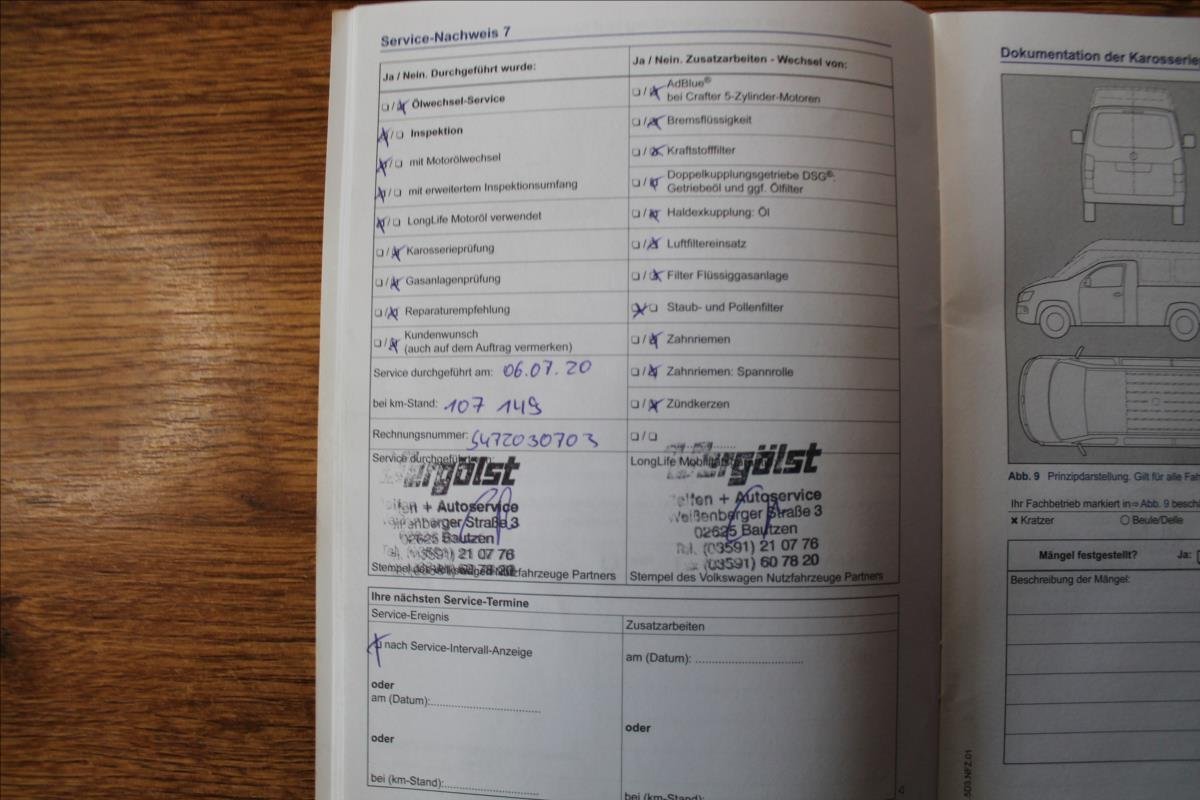 Service-Nachweis 7
Ja / Nein. Durchgeführt wurde:
❏ / ❏ Ölwechsel-Service
❏ / ❏ Inspektion
❏ / ❏ mit Motorölwechsel
❏ / ❏ mit erweitertem Inspektionsumfang
❏ / ❏ LongLife Motoröl verwendet
❏ / ❏ Karosserieprüfung
❏ / ❏ Gasanlagenprüfung
❏ / ❏ Reparaturempfehlung
❏ / ❏ Kundenwunsch
(auch auf dem Auftrag vermerken)
Service durchgeführt am: 06.07.20
bei km-Stand: 107 149
Rechnungsnummer: 5472030703
Service durchgeführt
+ Autoservice
Straße 3
02625 Bautzen
(03591) 21 07 76
60 78 20
Stempel des Volkswagen Nutzfahrzeuge Partners
Ja / Nein. Zusatzarbeiten - Wechsel von:
❏ / ❏ AdBlue®
bei Crafter 5-Zylinder-Motoren
❏ / ❏ Bremsflüssigkeit
❏ / ❏ Kraftstofffilter
❏ / ❏ Doppelkupplungsgetriebe DSG®:
Getriebeöl und ggf. Ölfilter
❏ / ❏ Haldexkupplung: Öl
❏ / ❏ Luftfiltereinsatz
❏ / ❏ Filter Flüssiggasanlage
❏ / ❏ Staub- und Pollenfilter
❏ / ❏ Zahnriemen
❏ / ❏ Zahnriemen: Spannrolle
❏ / ❏ Zündkerzen
❏ / ❏
LongLife
+ Autoservice
Weißenberger Straße 3
02625 Bautzen
Tel. (03591) 21 07 76
(03591) 60 78 20
Stempel des Volkswagen Nutzfahrzeuge Partners
Ihre nächsten Service-Termine
Service-Ereignis
nach Service-Intervall-Anzeige
oder
am (Datum):
oder
bei (km-Stand):
Zusatzarbeiten
am (Datum):
oder
bei (km-Stand):
Dokumentation der
Abb. 9 Prinzipdarstellung. Gilt für alle
Ihr Fachbetrieb markiert in ⇒ Abb. 9
✗ Kratzer ○ Beule/Delle
Mängel festgestellt? Ja:
Beschreibung der Mängel:
5D3.NFZ.01